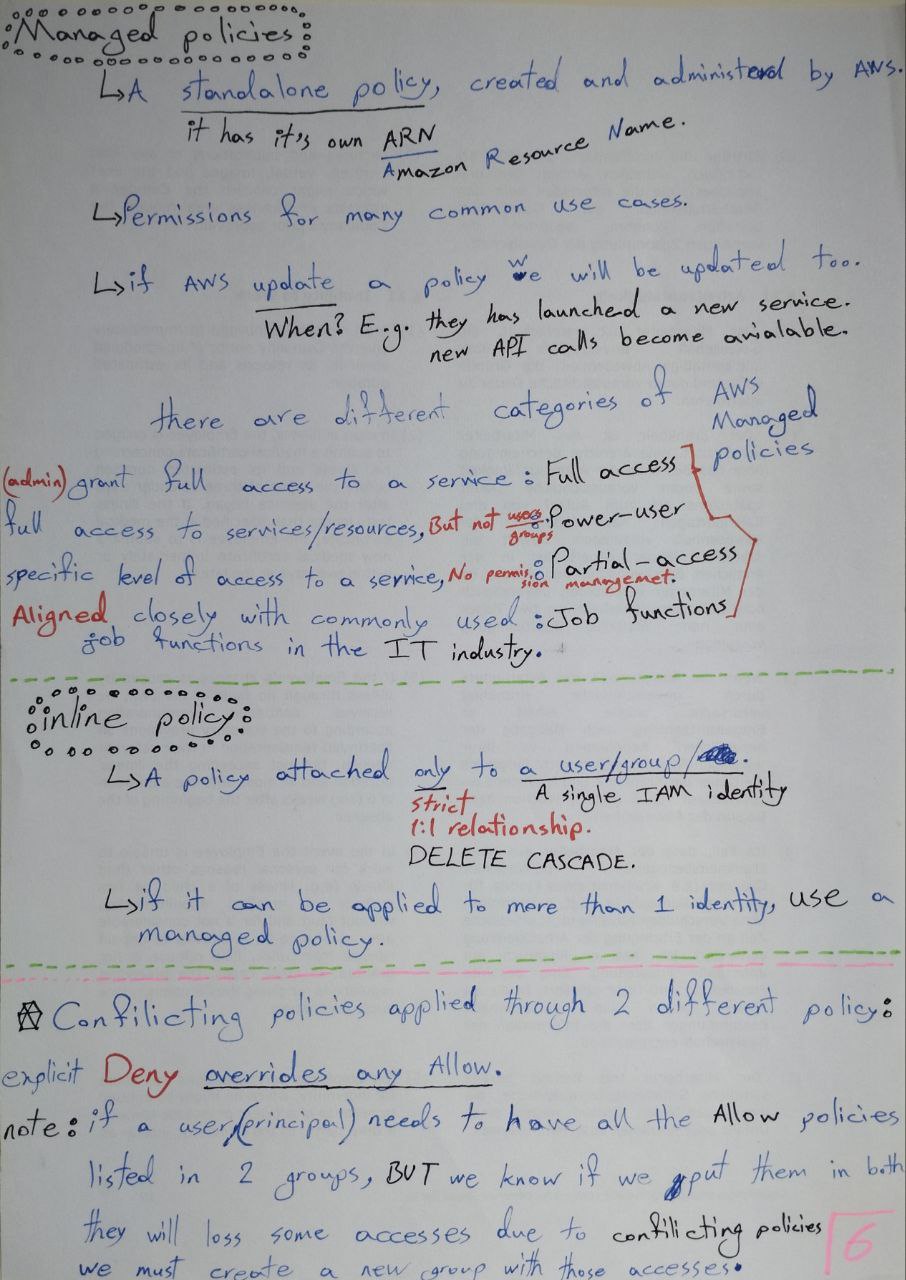 Managed policies
↳A standalone policy, created and administered by AWS.
it has it's own ARN
Amazon Resource Name.
↳Permissions for many common use cases.
↳if AWS update a policy we will be updated too.
When? E.g. they has launched a new service.
new API calls become avialable.
there are different categories of AWS
Managed
policies
(admin) grant full access to a service : Full access
full access to services/resources, But not users : Power-user
groups
specific level of access to a service, No permis : Partial-access
sion managemet.
Aligned closely with commonly used : Job functions
job functions in the IT industry.
inline policy
↳A policy attached only to a user/group/
strict A single IAM identity
1:1 relationship.
DELETE CASCADE.
↳if it can be applied to more than 1 identity, use a
managed policy.
Confilicting policies applied through 2 different policy:
explicit Deny overrides any Allow.
note: if a user(principal) needs to have all the Allow policies
listed in 2 groups, BUT we know if we put them in both
they will loss some accesses due to confilicting policies
we must create a new group with those accesses.
6